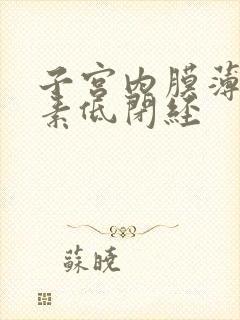 子宮内膜薄
素低閉経
蘇暁